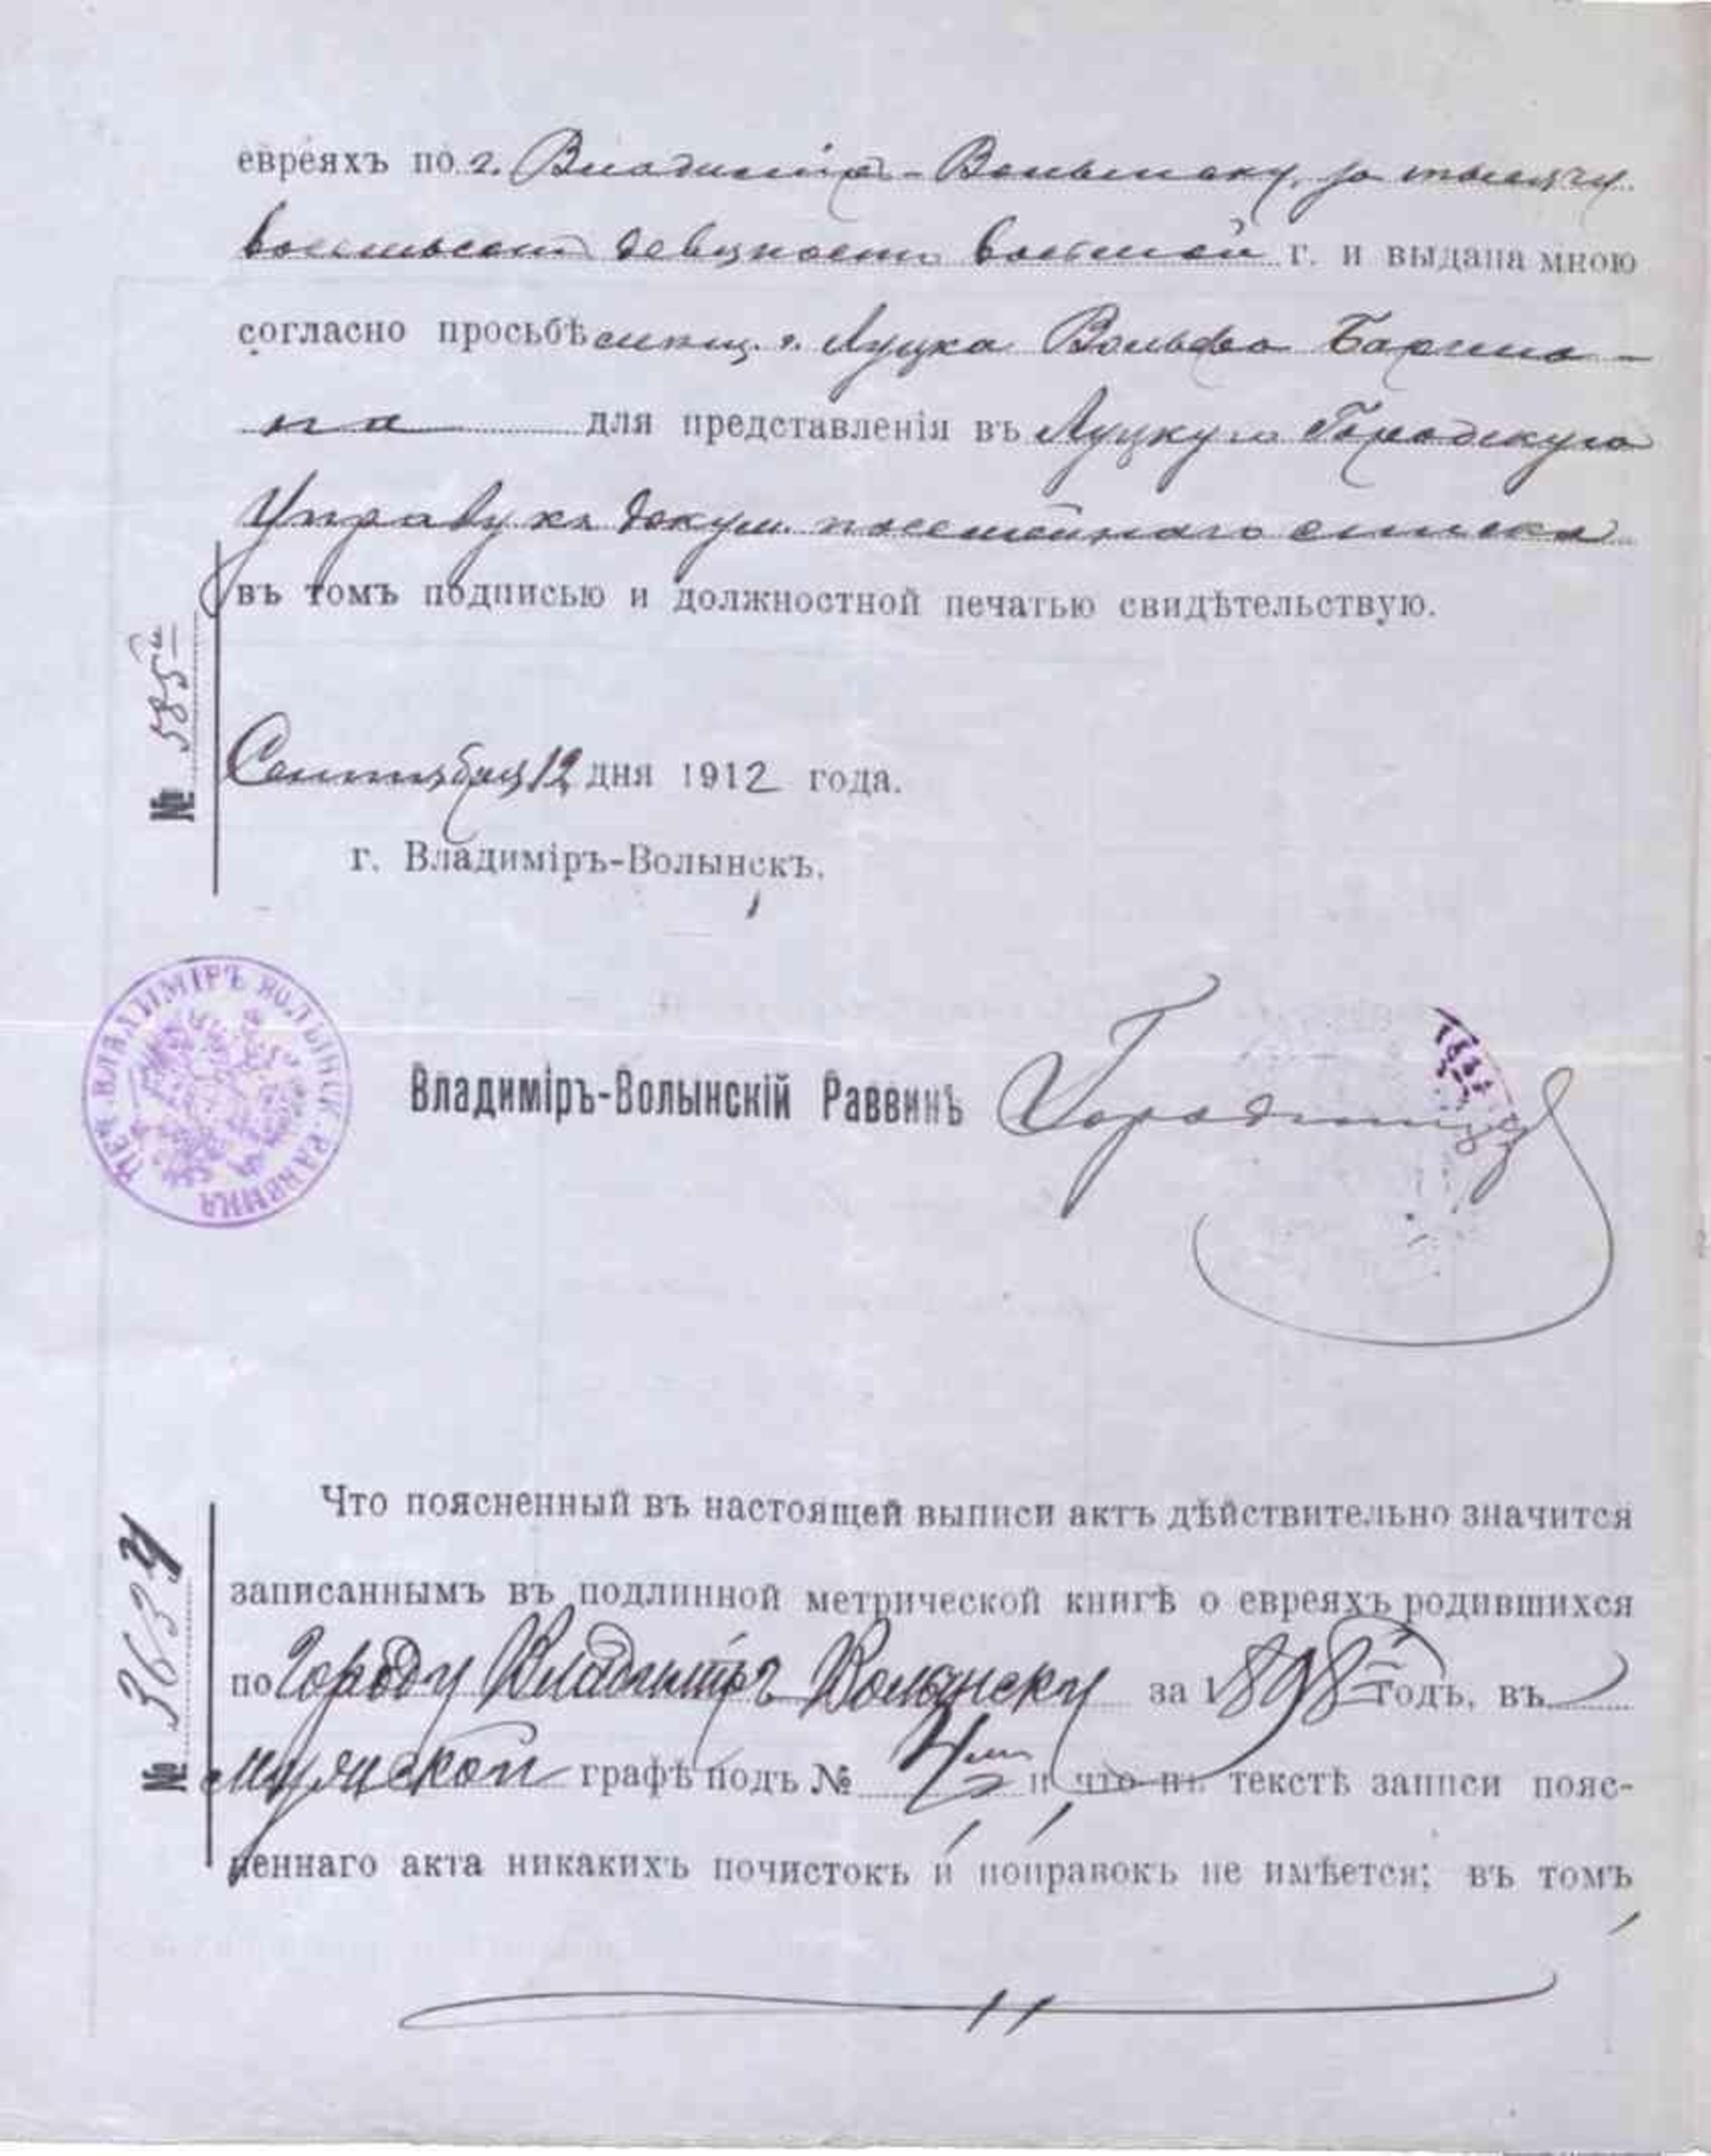 евреяхъ по г. Владиміръ-Волынску за тысячу
восемьсотъ девяносто восьмой г. и выдана мною
согласно просьбѣ г. Луцка Вольфа
на для представленія въ Луцкую Городскую
Управу къ докум. посемейнаго списка
въ томъ подписью и должностной печатью свидѣтельствую.
№ 585
Сентября 12 дня 1912 года.
г. Владиміръ-Волынскъ.
ПЕЧ. ВЛАДИМІРЪ ВОЛЫНСК. РАВВИНА
Владиміръ-Волынскій Раввинъ
Что поясненный въ настоящей выписи актъ дѣйствительно значится
записаннымъ въ подлинной метрической книгѣ о евреяхъ родившихся
по городу Владиміръ Волынску за 1898 годъ, въ
мужской графѣ подъ № и что въ текстѣ записи пояс-
неннаго акта никакихъ почистокъ и поправокъ не имѣется; въ томъ
№ 3634